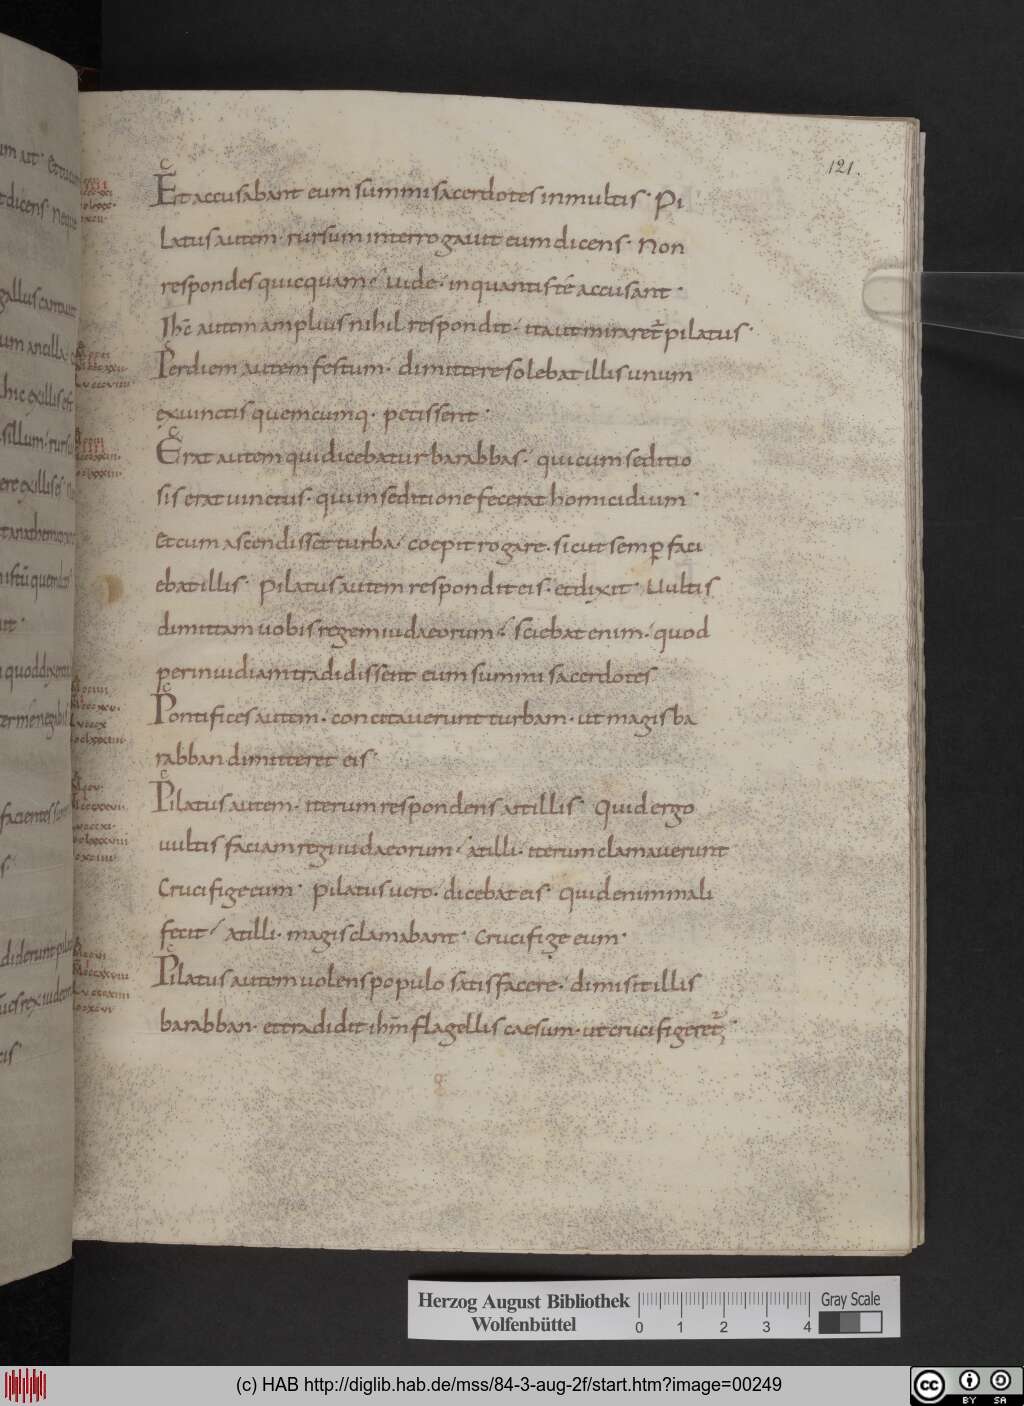 121.
Et accusabant eum summi sacerdotes in multis · Pi
latus autem · rursum interrogauit eum dicens · Non
respondes quicquam · uide · in quantis té accusant ·
Ihc̄ autem amplius nihil respondit · ita ut miraret᷑ pilatus ·
Per diem autem festum · dimittere solebat illis unum
ex uinctis quemcumq · petissent ·
Erat autem qui dicebatur barabbas · qui cum seditio
sis erat uinctus · qui in seditione fecerat homicidium ·
Et cum ascendisset turba · coepit rogare · sicut semꝑ faci
ebat illis · Pilatus autem respondit eis · et dixit · Uultis
dimittam uobis regem iudaeorum · sciebat enim · quod
per inuidiam tradidissent eum summi sacerdotes
Pontifices autem · concitauerunt turbam · ut magis ba
rabban dimitteret eis ·
Pilatus autem · iterum respondens ait illis · Quid ergo
uultis faciam regi iudaeorum · at illi · iterum clamauerunt
Crucifige eum · Pilatus uero · dicebat eis · Quid enim mali
fecit · at illi · magis clamabant · Crucifige eum ·
Pilatus autem uolens populo satisfacere · dimisit illis
barabban · et tradidit ihm̄ flagellis caesum · ut crucifigeret᷑ ·
Herzog August Bibliothek
Wolfenbüttel
0 1 2 3 4
Gray Scale
(c) HAB http://diglib.hab.de/mss/84-3-aug-2f/start.htm?image=00249
cc BY SA